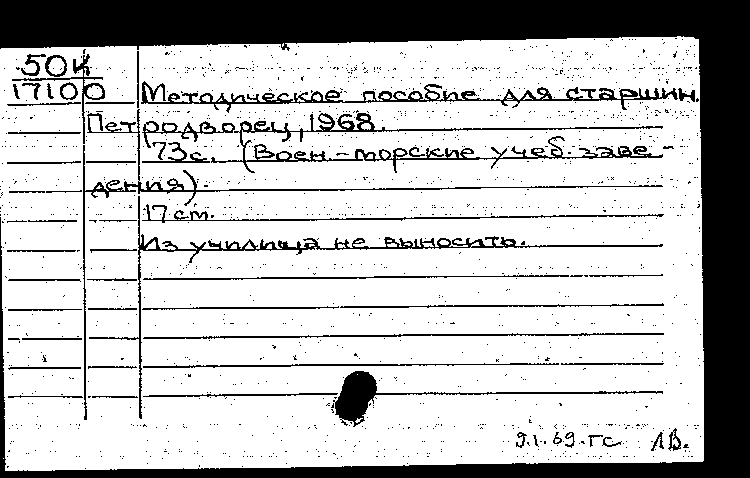 50К
17100 Методическое пособие для старшин.
Петродворец, 1968.
73с. (Воен.-морские учеб. заве-
дения).
17 см.
Из училища не выносить.
9.1.69.гс ЛВ.